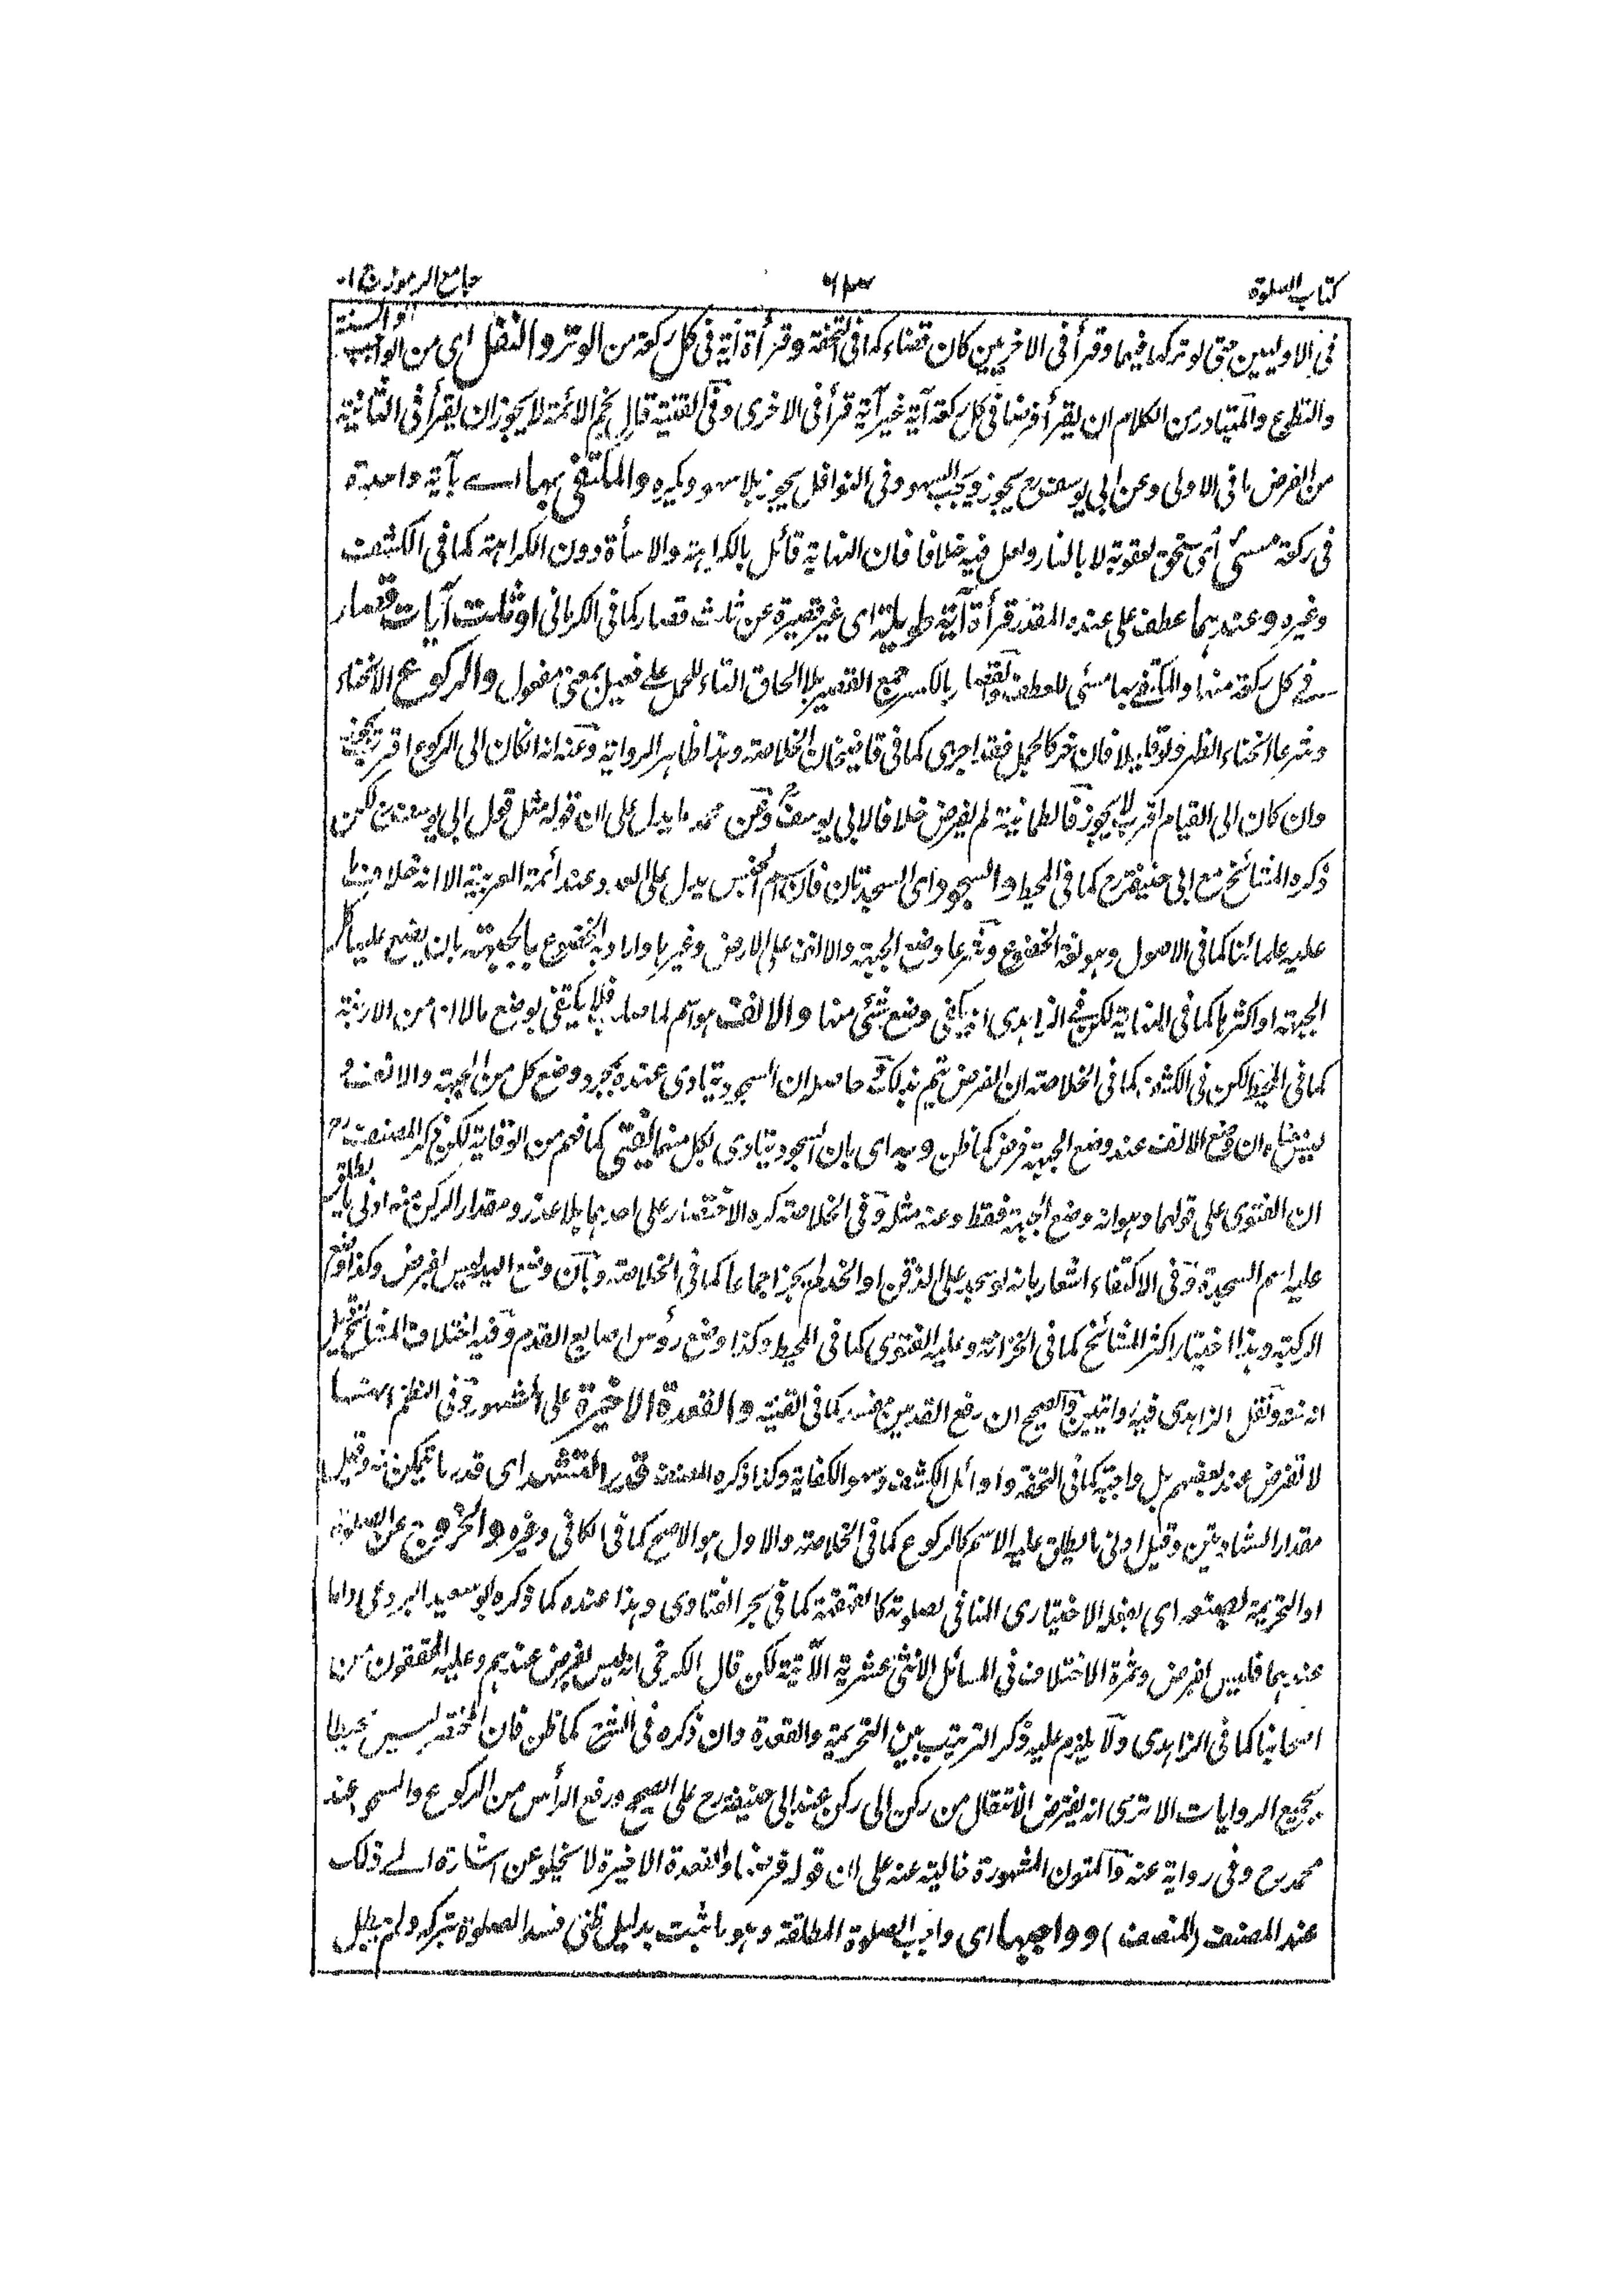 كتاب الصلوة
جامع الرموز ج ١
فى الاوليين حتى لو تركها فيهما وقرأ فى الاخريين كان قضاء كما فى التحفة وقرأة آية فى كل ركعة من الوتر والنفل اى من الواجب والسنة
والتطوع والمتبادر من الكلام ان يقرأ فرضا فى كل ركعة آية غير آية قرأ فى الاخرى وفى القنية قال نجم الائمة لا يجوز ان يقرأ فى الثانية
من الفرض ما فى الاولى وعن ابى يوسف رح يجوز ويجب السهو وفى النوافل يجوز بلا سهو ويكره والمكتفى بها اے بآية واحدة
فى ركعة مسئ اى يستحق لعقوبة لا بالنار ولعل فيه خلافا فان النهاية قائل بالكراهة والاسأة دون الكراهة كما فى الكشف
وغيره وعندهما عطف على عنده المقدر قرأة آية طويلة اى غير قصيرة عن ثلث قصار كما فى الكرمانى او ثلث آيات قصار
فے كل ركعة منها والمكتفے بها مسئى للعطف والقصار بالكسر جمع القصير بلا الحاق التاء للحمل على فعيل بمعنى مفعول والركوع الانحناء
وشرعا انحناء الظهر ولو قليلا فان خر كالجمل فقد اجزى كما فى قاضيخان الخلاصة وهذا ظاهر الرواية وعنه انه ان كان الى الركوع اقرب يجوز
وان كان الى القيام اقرب لا يجوز فالطمانينة لم يفرض خلافا لابى يوسف وعن محمد ما يدل على ان قوله مثل قول ابى يوسف رح لكن
ذكره المشائخ مع ابى حنيفة رح كما فى المحيط والسجود اى السجدتان فان اسم الجنس يدل على العدد عند أئمة العربية الا انه خلاف ما
عليه علمائنا كما فى الاصول وهو لغة الخضوع وشرعا وضع الجبهة والانف على الارض وغيرها واراد به الخضوع بالجبهة بان يضع عليها كل
الجبهة او اكثرها كما فى النهاية لكن فے الزاهدى انه يكفى وضع شئ منها والانف هو اسم لما صلب فلا يكتفى بوضع ما لان من الارنبة
كما فى المحيط لكن فى الكشف كما فى الخلاصة ان الفرض يتم بذلك وحاصله ان السجود يتادى عنده بمجرد وضع كل من الجبهة والانف و
ليس معناه ان وضع الانف عند وضع الجبهة فرض كما ظن وبه اى بان السجود يتادى بكل منهما يفتى كما فهم من الوقاية لكن ذكر المصنف رح
ان الفتوى على قولهما وهو انه وضع الجبهة فقط وعنه مثله وفى الخلاصة كره الاقتصار على احدهما بلا عذر ومقدار الركن منه ادنى ما يطلق
عليه اسم السجدة وفى الاكتفاء اشعار بانه لو سجد على الذقن او الخد لم يجز اجماعا كما فى الخلاصة وبان وضع اليد ليس بفرض وكذا وضع
الركبة وهذا اختيار اكثر المشائخ كما فى الخزانة وعليه الفتوى كما فى المحيط وكذا وضع رؤس اصابع القدم وفيه اختلاف المشائخ قيل
انه سنة ونقل الزاهدى فيه روايتين والصحيح ان رفع القدمين مفسد كما فى القنية والقعدة الاخيرة على المشهور وفى النظم انها
لا تفرض عند بعضهم بل واجبة كما فى التحفة واوائل الكشف وسهو الكفاية وكذا ذكره المصنف قدر التشهد اى قدر ما يتمكن منه وقيل
مقدار الشهادتين وقيل ادنى ما يطلق عليه الاسم كالركوع كما فى الخلاصة والاول هو الاصح كما فى الكافى وغيره والخروج عن الصلوة
او التحريمة بصنعه اى بفعله الاختيارى المنافى لصلوته كالقهقهة كما فى بحر الفتاوى وهذا عنده كما ذكره ابو سعيد البردعى واما
عندهما فليس بفرض وثمرة الاختلاف فى المسائل الاثنى عشرية الآتية لكن قال الكرخى انه ليس بفرض عندهم وعليه المحققون من
اصحابنا كما فى الزاهدى ولا يلزم عليه ذكر الترتيب بين التحريمة والقعدة وان ذكره فى الشرح كما ظن فان المختصر ليس محيطا
بجميع الروايات الا ترى انه يفترض الانتقال من ركن الى ركن عند ابى حنيفة رح على الصحيح ورفع الرأس من الركوع والسجود عند
محمد رح وفى رواية عنه والمتون المشهورة خالية عنه على ان قوله فرضها والقعدة الاخيرة لا يخلو عن اشارة الے ذلك
عند المصنف (المنصف) وواجبها اى واجب الصلوة المطلقة وهو ما ثبت بدليل ظنى فسد الصلوة بتركه ولم يبطل